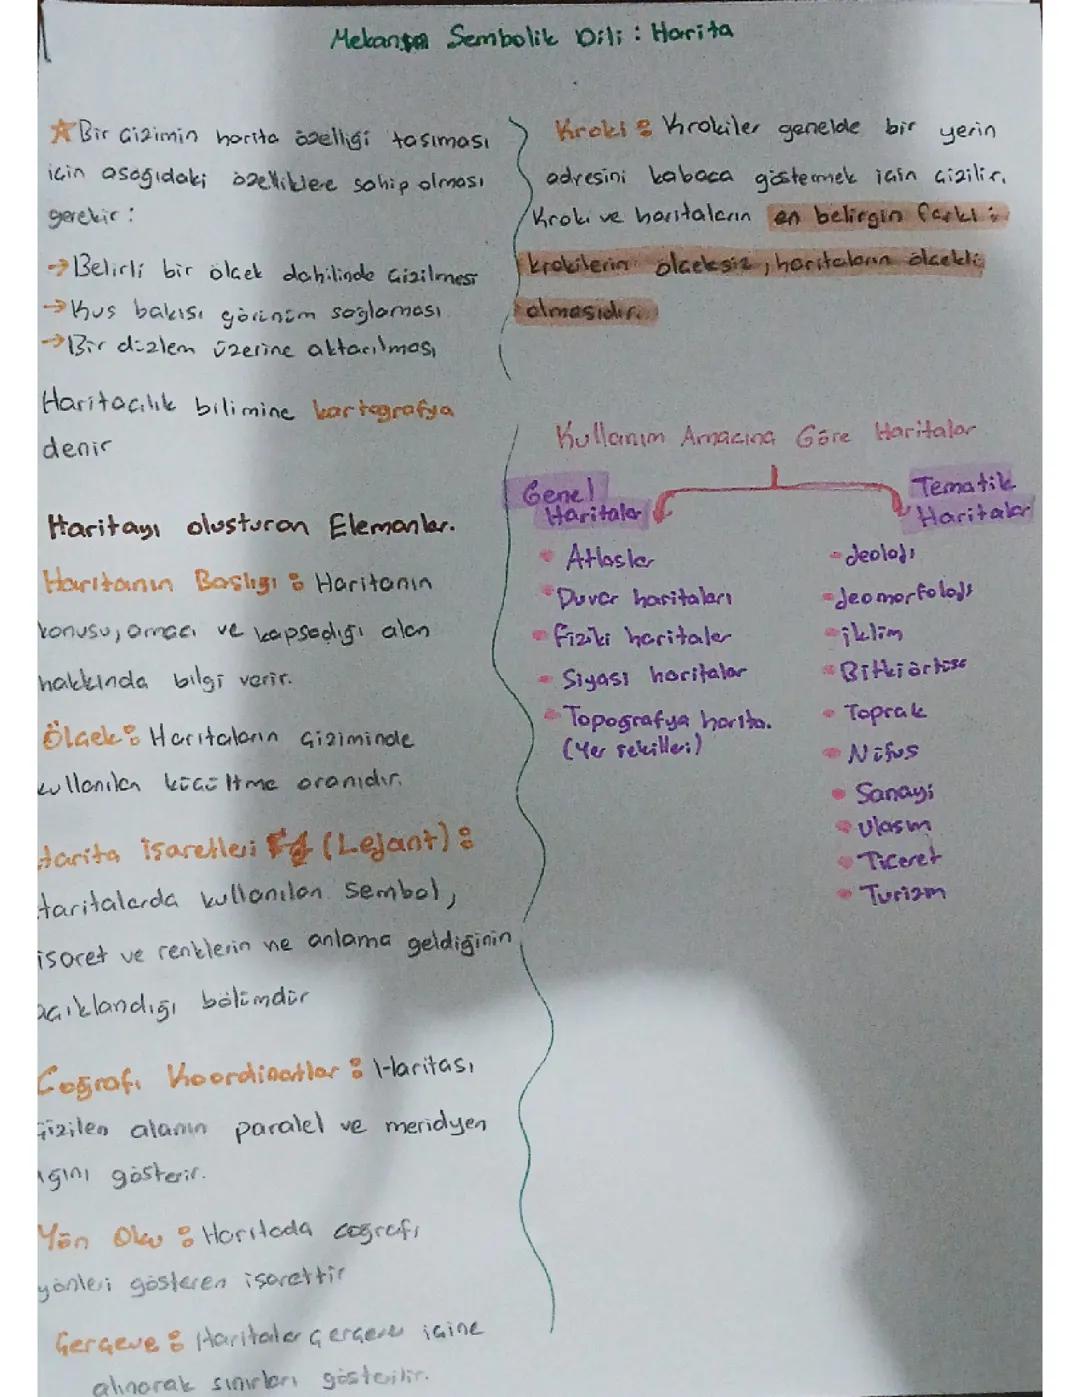 Mekansal Sembolik Dili : Harita
☆ Bir çizimin harita özelliği taşıması
için aşağıdaki özelliklere sahip olması
gerekir :
→ Belirli bir ölçek dahilinde çizilmesi
→ Kuş bakışı görünüm sağlaması
→ Bir düzlem üzerine aktarılması
Haritacılık bilimine kartografya
denir
Haritayı oluşturan Elemanlar.
Haritanın Başlığı : Haritanın
konusu, amacı ve kapsadığı alan
hakkında bilgi verir.
Ölçek : Haritaların çiziminde
kullanılan küçültme oranıdır.
Harita işaretleri (Lejant) :
Haritalarda kullanılan sembol,
işaret ve renklerin ne anlama geldiğinin
açıklandığı bölümdür
Coğrafi Koordinatlar : Haritası
çizilen alanın paralel ve meridyen
ağını gösterir.
Yön Oku : Haritada coğrafi
yönleri gösteren işarettir
Çerçeve : Haritalar çerçeve içine
alınarak sınırları gösterilir.
Kroki : Krokiler genelde bir yerin
adresini kabaca göstermek için çizilir.
Kroki ve haritaların en belirgin farkı :
krokilerin ölçeksiz, haritaların ölçekli
olmasıdır.
Kullanım Amacına Göre Haritalar
Genel
Haritalar
• Atlaslar
• Duvar haritaları
• Fiziki haritalar
• Siyasi haritalar
• Topografya harita.
(Yer şekilleri)
Tematik
Haritalar
• Jeoloji
• Jeomorfoloji
• iklim
• Bitki örtüsü
• Toprak
• Nüfus
• Sanayi
• Ulaşım
• Ticeret
• Turizm